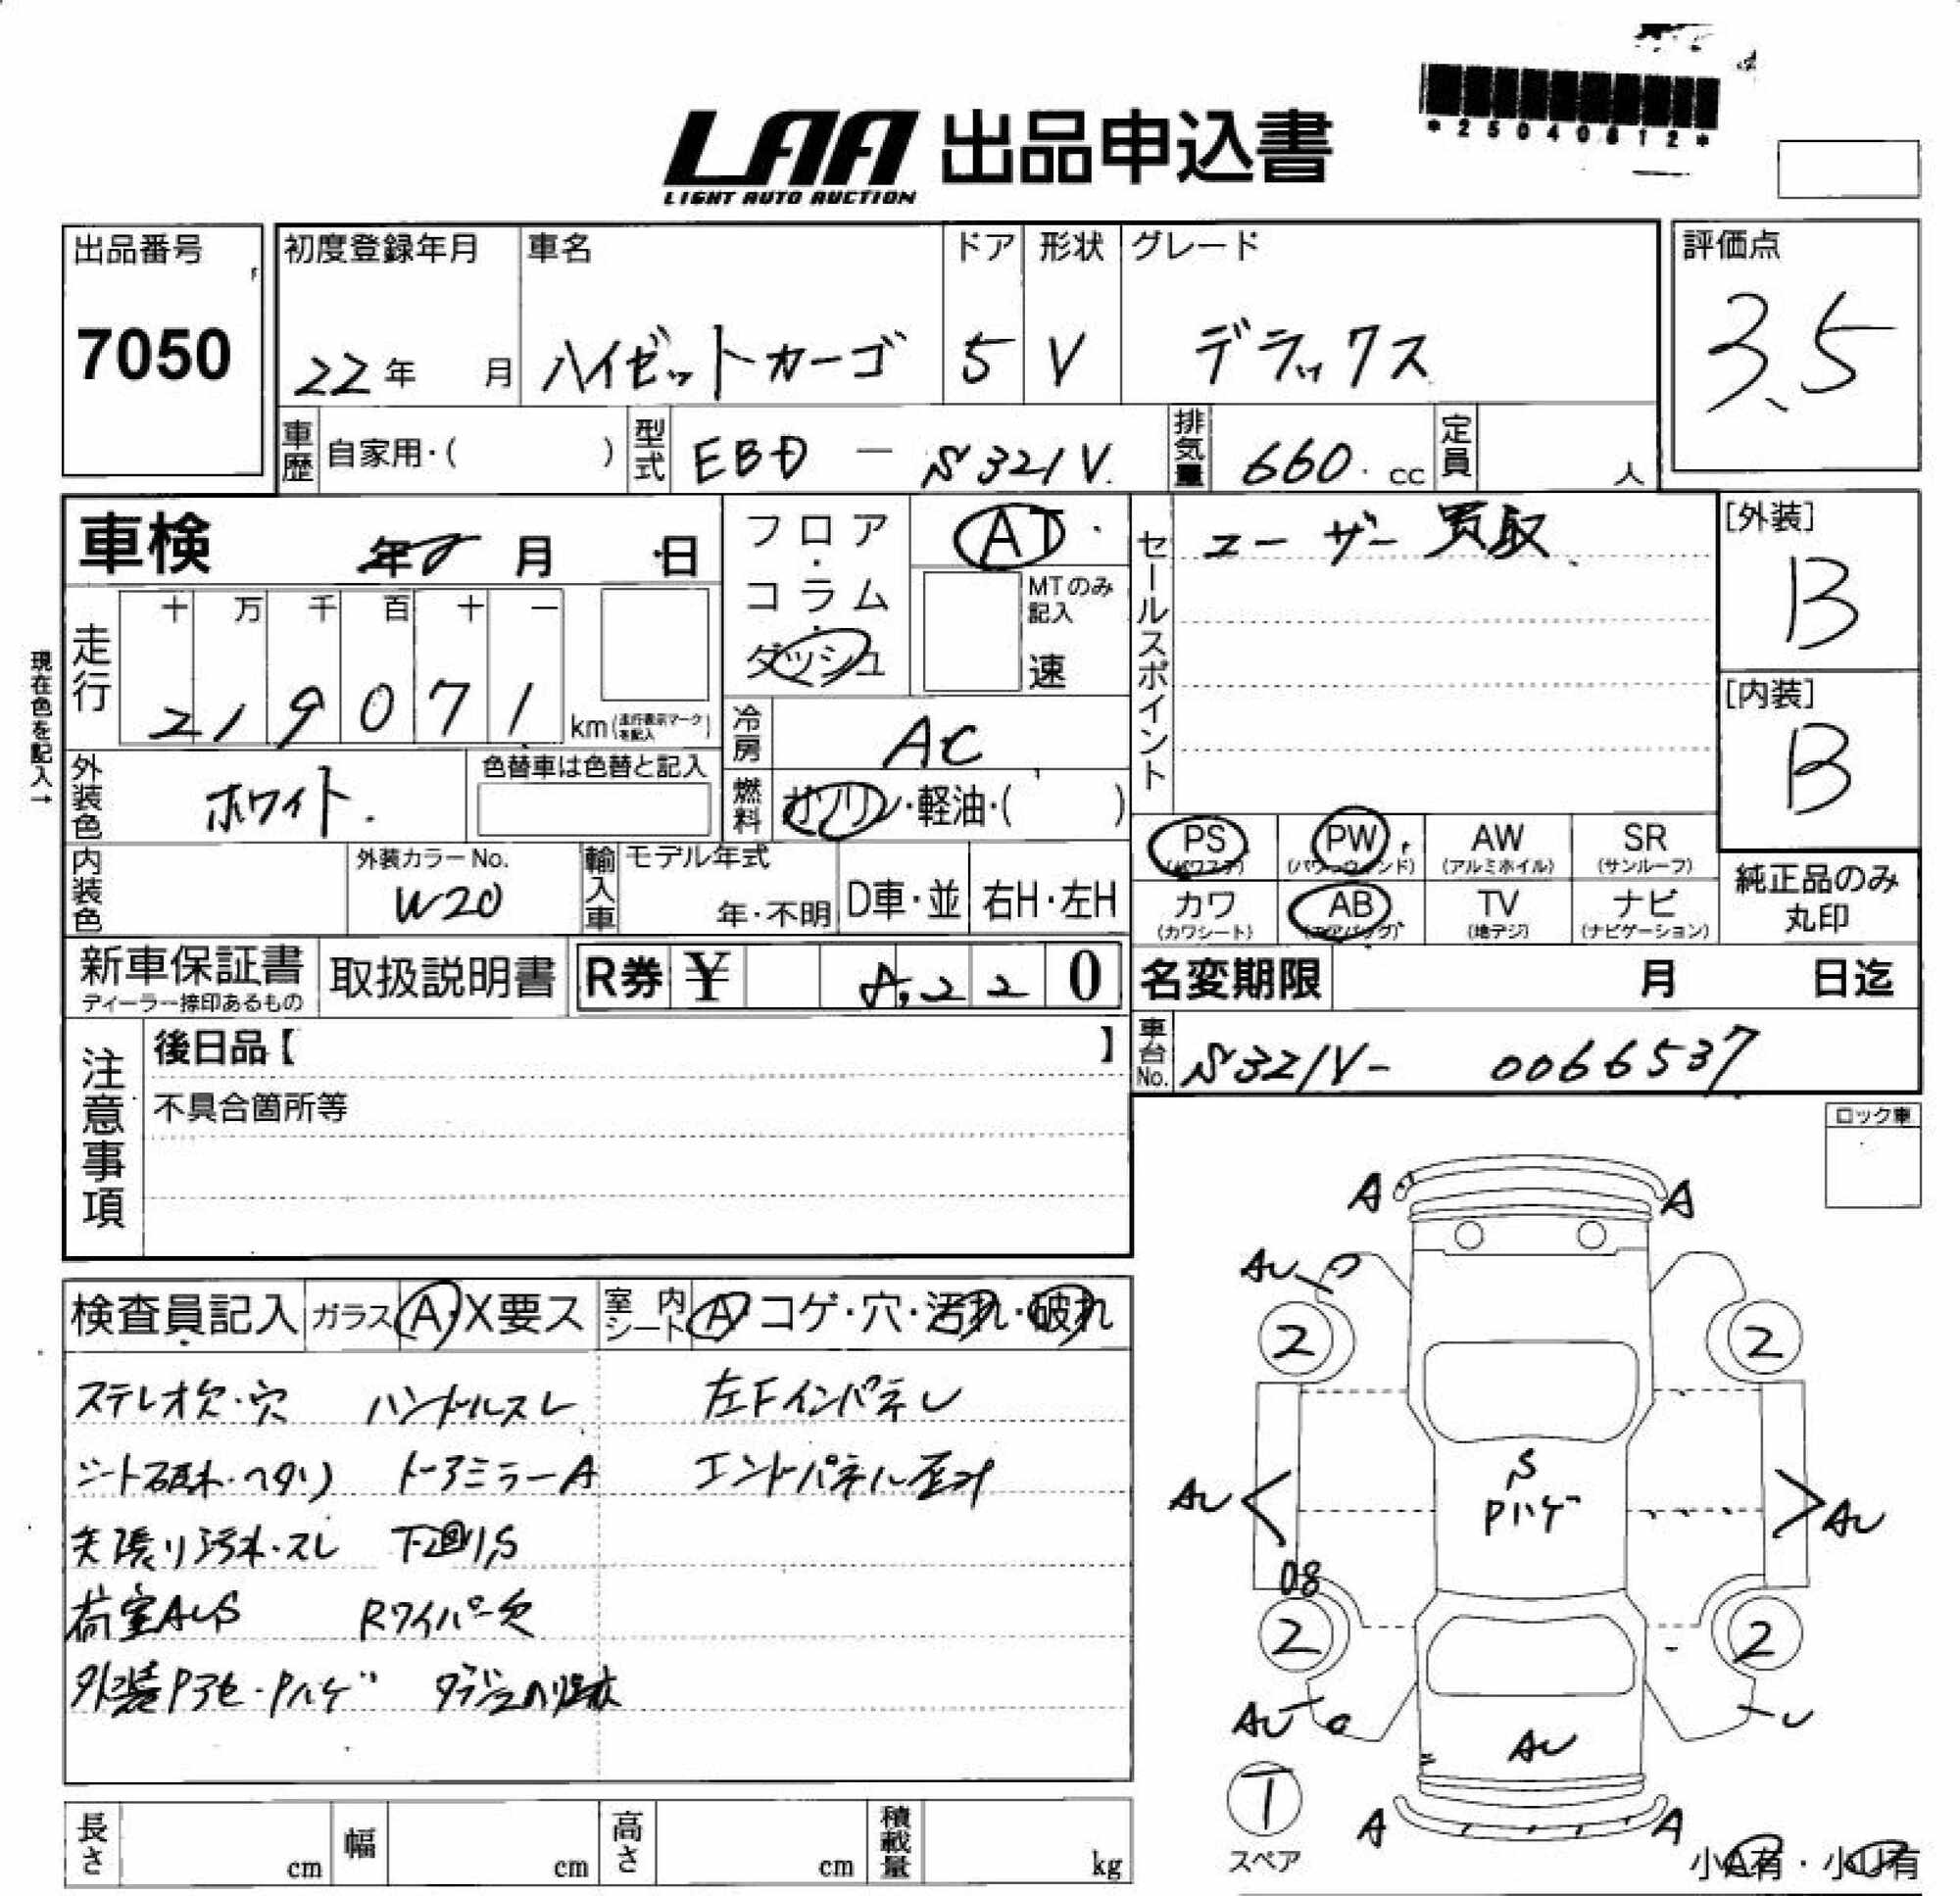 *25040812*
LAA 出品申込書
LIGHT AUTO AUCTION
出品番号
7050
初度登録年月
22年 月
車名
ハイゼットカーゴ
ドア
5
形状
V
グレード
デラックス
評価点
3.5
車歴 自家用・( )
型式 EBD - S321V
排気量 660. cc
定員 人
車検 年 月 日
フロア・コラム・ダッシュ
AT
MTのみ記入
速
セールスポイント
ユーザー買取
[外装]
B
現在色を記入→
走行
十 万 千 百 十 一
2 1 9 0 7 1
km (走行表示マークを記入)
[内装]
B
冷房 AC
外装色 ホワイト.
色替車は色替と記入
燃料 ガソリン・軽油・( )
PS (パワステ)
PW (パワーウィンド)
AW (アルミホイル)
SR (サンルーフ)
内装色
外装カラーNo.
W20
輸入車 モデル年式
年・不明
D車・並
右H・左H
カワ (カワシート)
AB (エアバッグ)
TV (地デジ)
ナビ (ナビゲーション)
純正品のみ丸印
新車保証書
ディーラー捺印あるもの
取扱説明書
R券 ¥ 8,220
名変期限 月 日迄
注意事項
後日品【 】
車台No. S321V- 0066537
不具合箇所等
ロック車
A A
AU
2 2
検査員記入
ガラス A・X要ス
室内シート A・コゲ・穴・汚れ・破れ
ステレオ欠・穴 ハンドルスレ 左FインパネU
シート破れ・ヘタリ ドアミラーA エンドパネル歪み
天張り汚れ・スレ 下廻りS
荷室AUS Rワイパー欠
外装Pアセ・Pハゲ
S
Pハゲ
AU AU
08
2 2
AU AU U
T
スペア
A A
小A有・小U有
長さ cm
幅 cm
高さ cm
積載量 kg